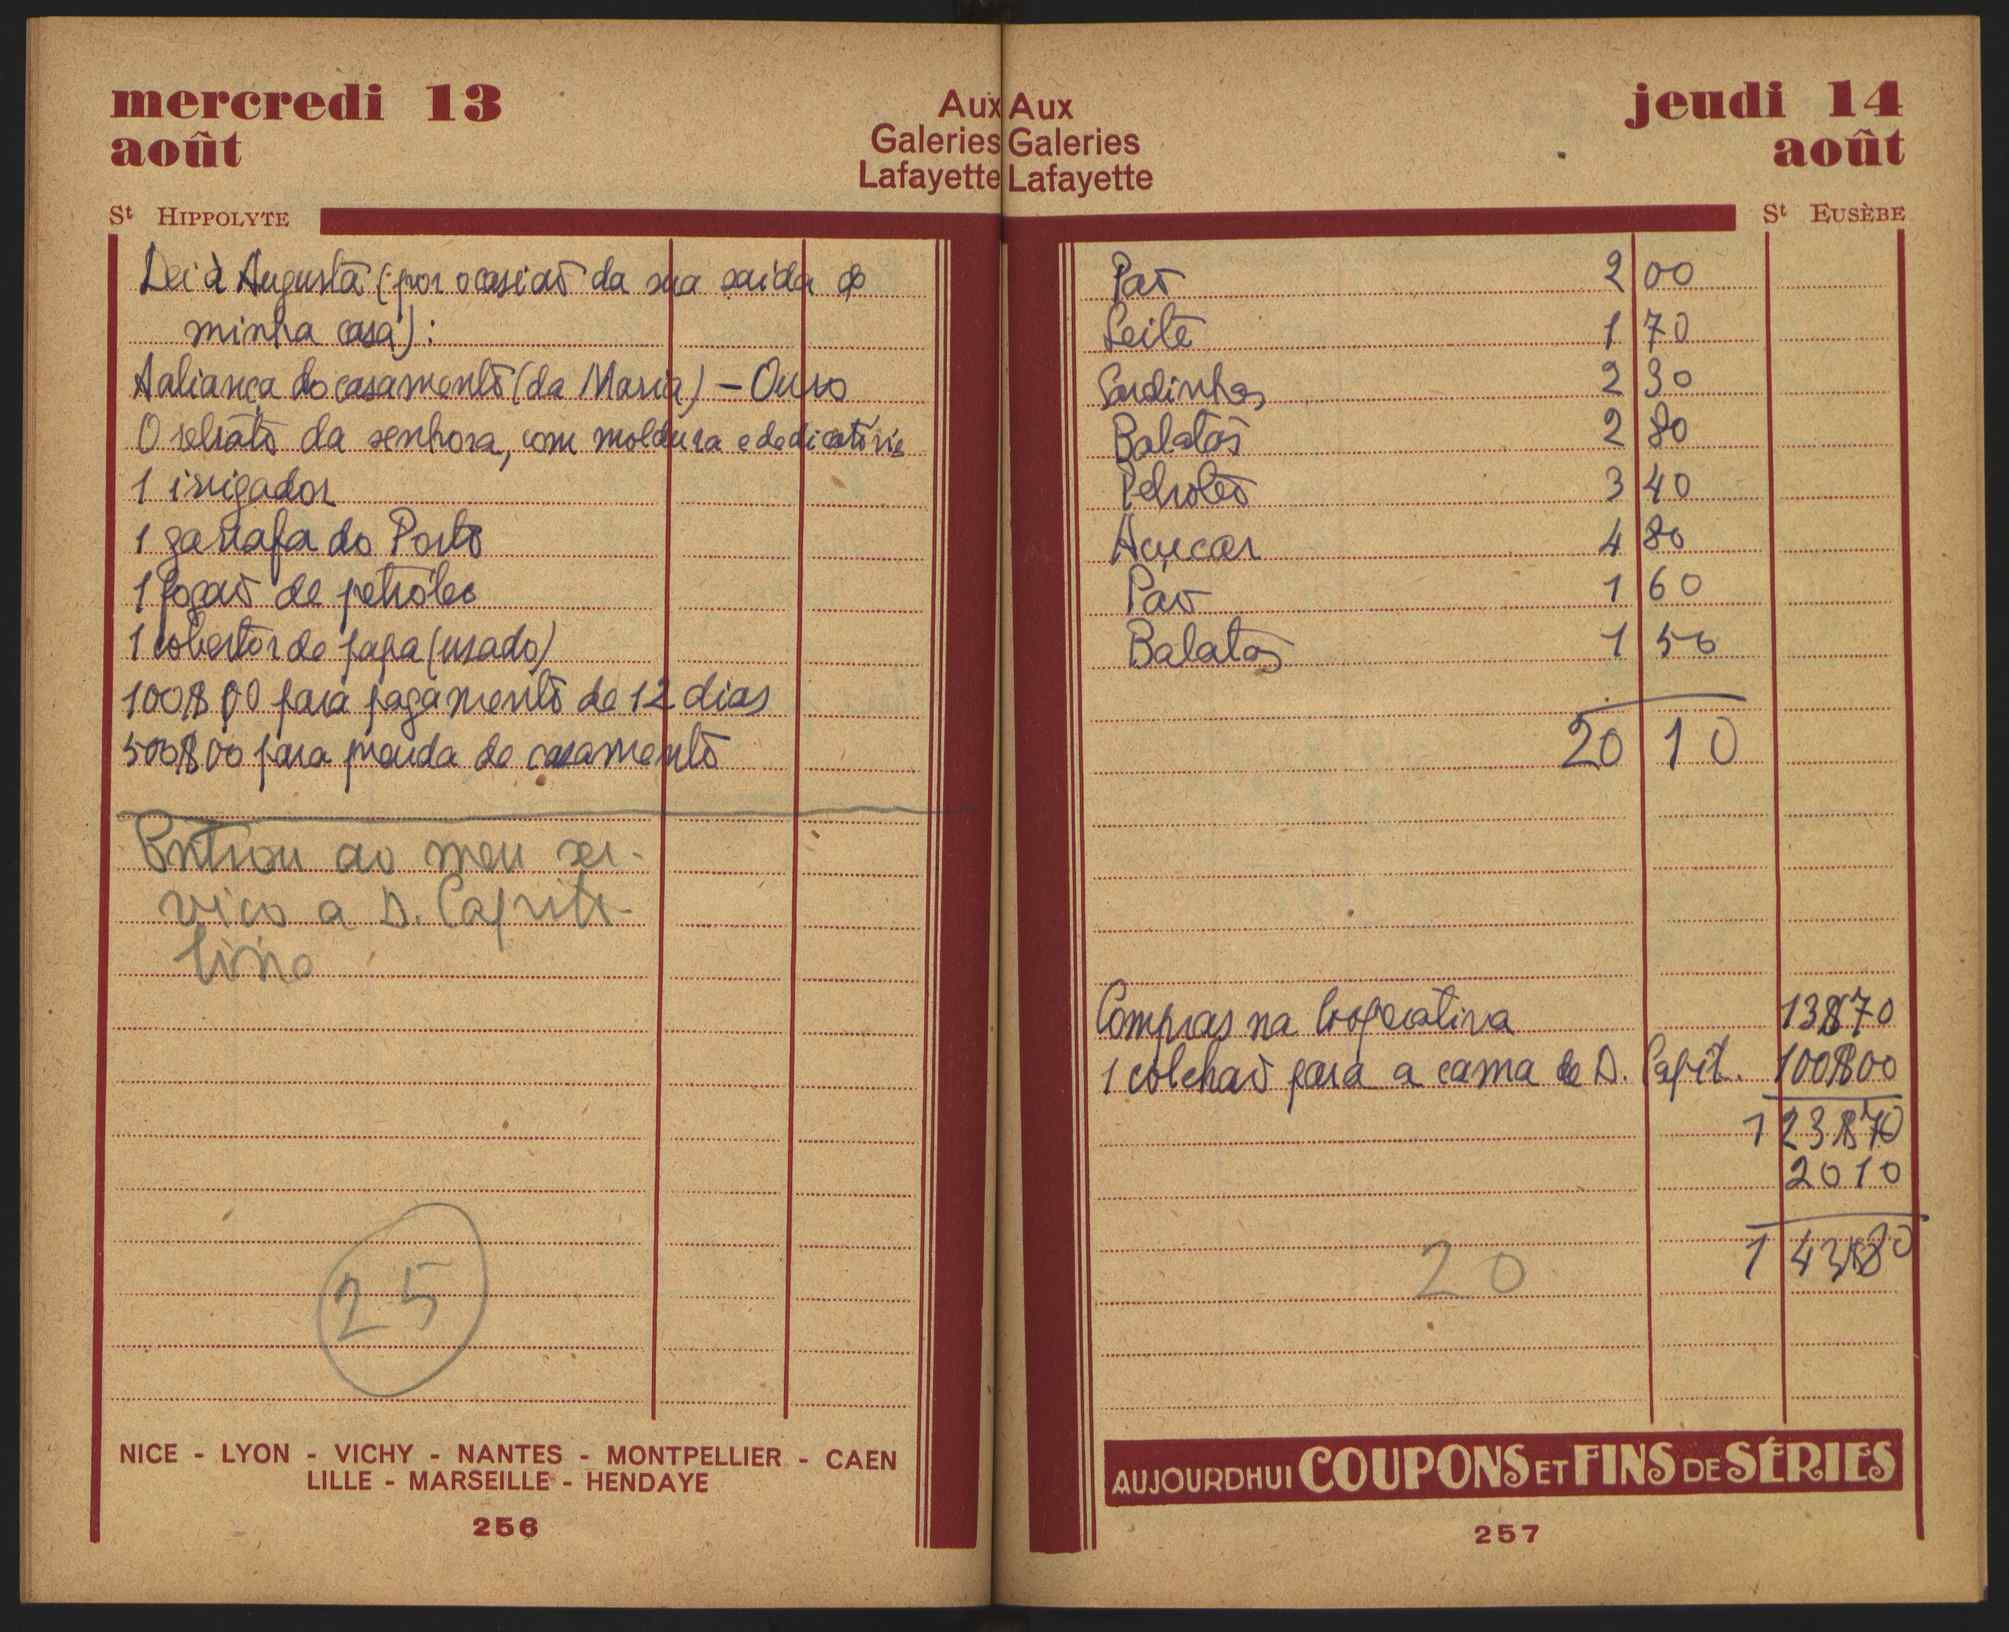 mercredi 13
août
Aux
Galeries
Lafayette
St HIPPOLYTE
Dei à Augusta (por ocasião da sua saída de
minha casa):
A aliança do casamento (da Maria) – Ouro
O retrato da senhora, com moldura e dedicatória
1 irrigador
1 garrafa do Porto
1 fogão de petróleo
1 cobertor de papa (usado)
100$00 para pagamento de 12 dias
500$00 para prenda de casamento
Entrou ao meu ser-
viço a D. Capito-
lina
25
NICE - LYON - VICHY - NANTES - MONTPELLIER - CAEN
LILLE - MARSEILLE - HENDAYE
256
Aux
Galeries
Lafayette
jeudi 14
août
St EUSÈBE
Pão 2 00
Leite 1 70
Sardinhas 2 30
Batatas 2 80
Petroleo 3 40
Açucar 4 80
Pão 1 60
Batatas 1 50
20 10
Compras na Cooperativa 13$70
1 colchão para a cama de D. Capit. 100$00
123$70
2010
20
143$80
AUJOURDHUI COUPONS ET FINS DE SÉRIES
257